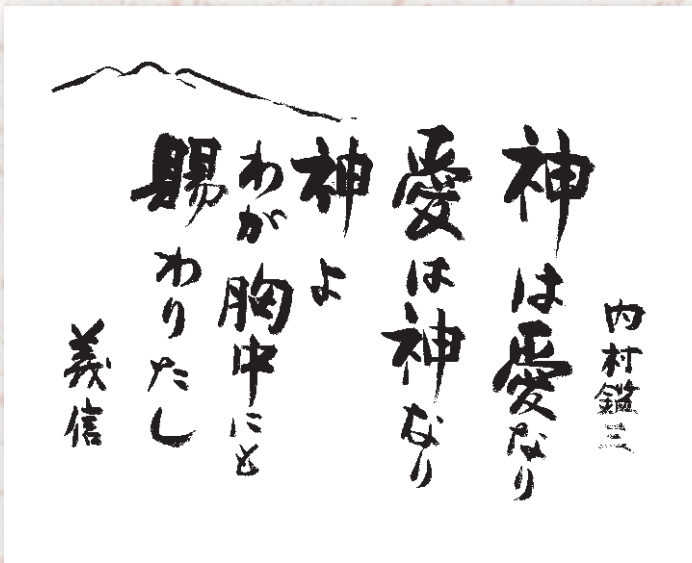 内村鑑三
神は愛なり
愛は神なり
神よ
わが胸中にも
賜わりたし
義信